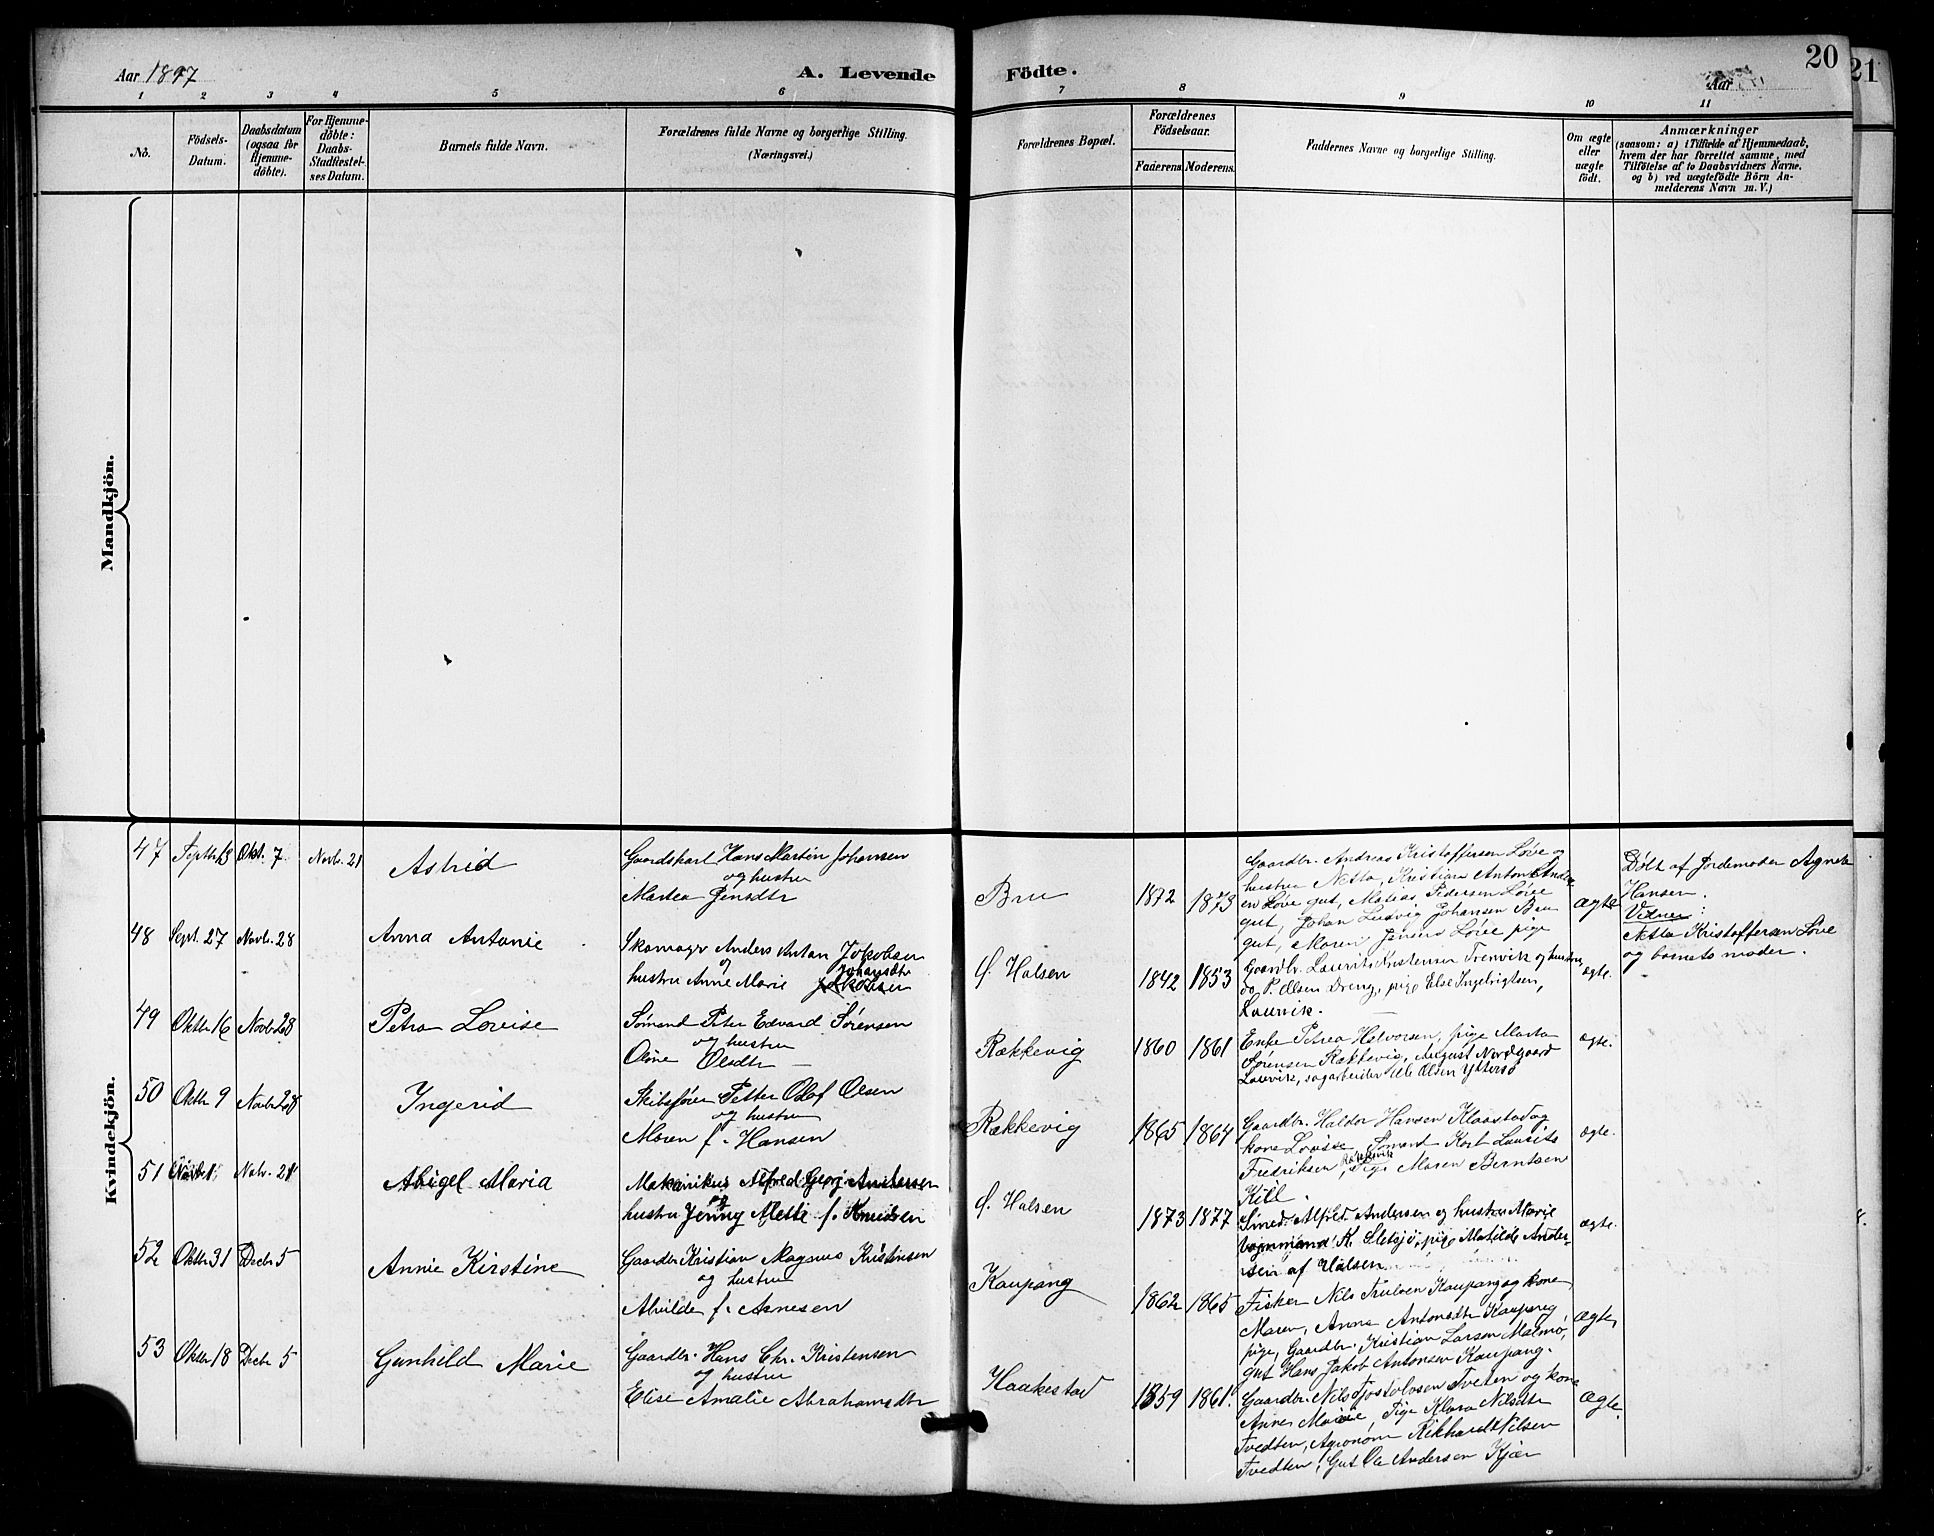 Aar 1897
A. Levende Födte.
20
21
Aar
1 2 3 4 5 6 7 8 9 10 11
No.
Födsels-
Datum.
Daabsdatum
(ogsaa for
Hjemme-
döbte).
For Hjemme-
döbte:
Daabs-
Stadfæstel-
ses Datum.
Barnets fulde Navn.
Forældrenes fulde Navne og borgerlige Stilling.
(Næringsvei.)
Forældrenes Bopæl.
Forældrenes
Födselsaar.
Faderens. Moderens.
Faddernes Navne og borgerlige Stilling.
Om ægte
eller
uægte
födt.
Anmærkninger
(saasom: a) i Tilfælde af Hjemmedaab,
hvem der har forrettet samme, med
Tilföielse af to Daabsvidners Navne,
og b) ved uægtefödte Börn An-
melderens Navn m. V.)
Mandkjön.
Kvindekjön.
47 Septbr 13 Okt. 7. Novbr. 21 Astrid
Gaardskarl Hans Martin Johansen
og hustru
Martea Jensdtr
Bru 1872 1873
Gaardbr. Andreas Kristoffersen Løve og
hustru Netta, Kristian Anton Ander-
en Løve gut, Matias Pedersen Løve
gut, Johan Ludvig Johansen Bru
gut, Maren Jensen Løve pige
ægte
Døbt af Jordemoder Agnete
Hansen.
Vidner:
Netta Kristoffersen Løve
og barnets moder.
48 Sept. 27 Novbr. 28 Anna Antonie
Skomager Anders Anton Jakobsen
og
hustru Anne Marie Johansdtr
Jakobsen
Ø. Halsen 1842 1853
Gaardbr. Laurits Kristensen Trenvik og hustru,
do P. Olsen Dreng, pige Else Ingebrigtsen,
Laurvik.
ægte.
49 Oktbr 16 Novbr 28 Petra Lovise
Sømand Peter Edvard Sørensen
og hustru
Oline Olsdtr
Rækkevig 1860 1861
Enke Petrea Halvorsen, pige Marta
Sørensen Rækkevig, August Nordgaard
Laurvik, sagarbeider Ole Olsen Ytterso
ægte.
50 Oktbr 9 Novbr 28 Ingerid
Skibsfører Petter Olaf Olsen
og hustru
Maren f. Hansen
Rækkevig 1865 1864
Gaardbr. Haldor Hansen Klaastad og
kone Lovise Sømand Karl Laurits
Fredriksen Rækkevik, Pige Maren Berntsen
Kill.
ægte.
51 Novbr. 21 Abigel Maria
Mekanikus Alfred Georg Andersen
og
hustru Jenny Alette f. Knudsen
Ø. Halsen 1873 1877
Smed. Alfred Andersen og hustru Marie
pige Matilde Ander-
sen af Halsen
ægte.
52 Oktbr 31 Decbr 5 Annie Kirstine
Gaardbr Kristian Magnus Kristensen
og hustru
Alvilde f. Arnesen
Kaupang 1862 1865
Fisker Nils Trulsen Kaupang og kone
Maren, Anna Antonsdtr Kaupang
pige, Gaardbr. Kristian Larsen Malmø,
gut Hans Jakob Antonsen Kaupang.
ægte,
53 Oktbr 18 Decbr 5 Gunhild Marie
Gaardbr. Hans Chr. Kristensen
og hustru
Elise Amalie Abrahamsdtr
Haakestad 1859 1861.
Gaardbr. Nils Jostolvsen Tveten og kone
Anne Marie, Pige Klara Nilsdtr
Tvedten, Agronom Rikhard Nilsen
Tvedten, Gut Ole Andersen Kjær
ægte.